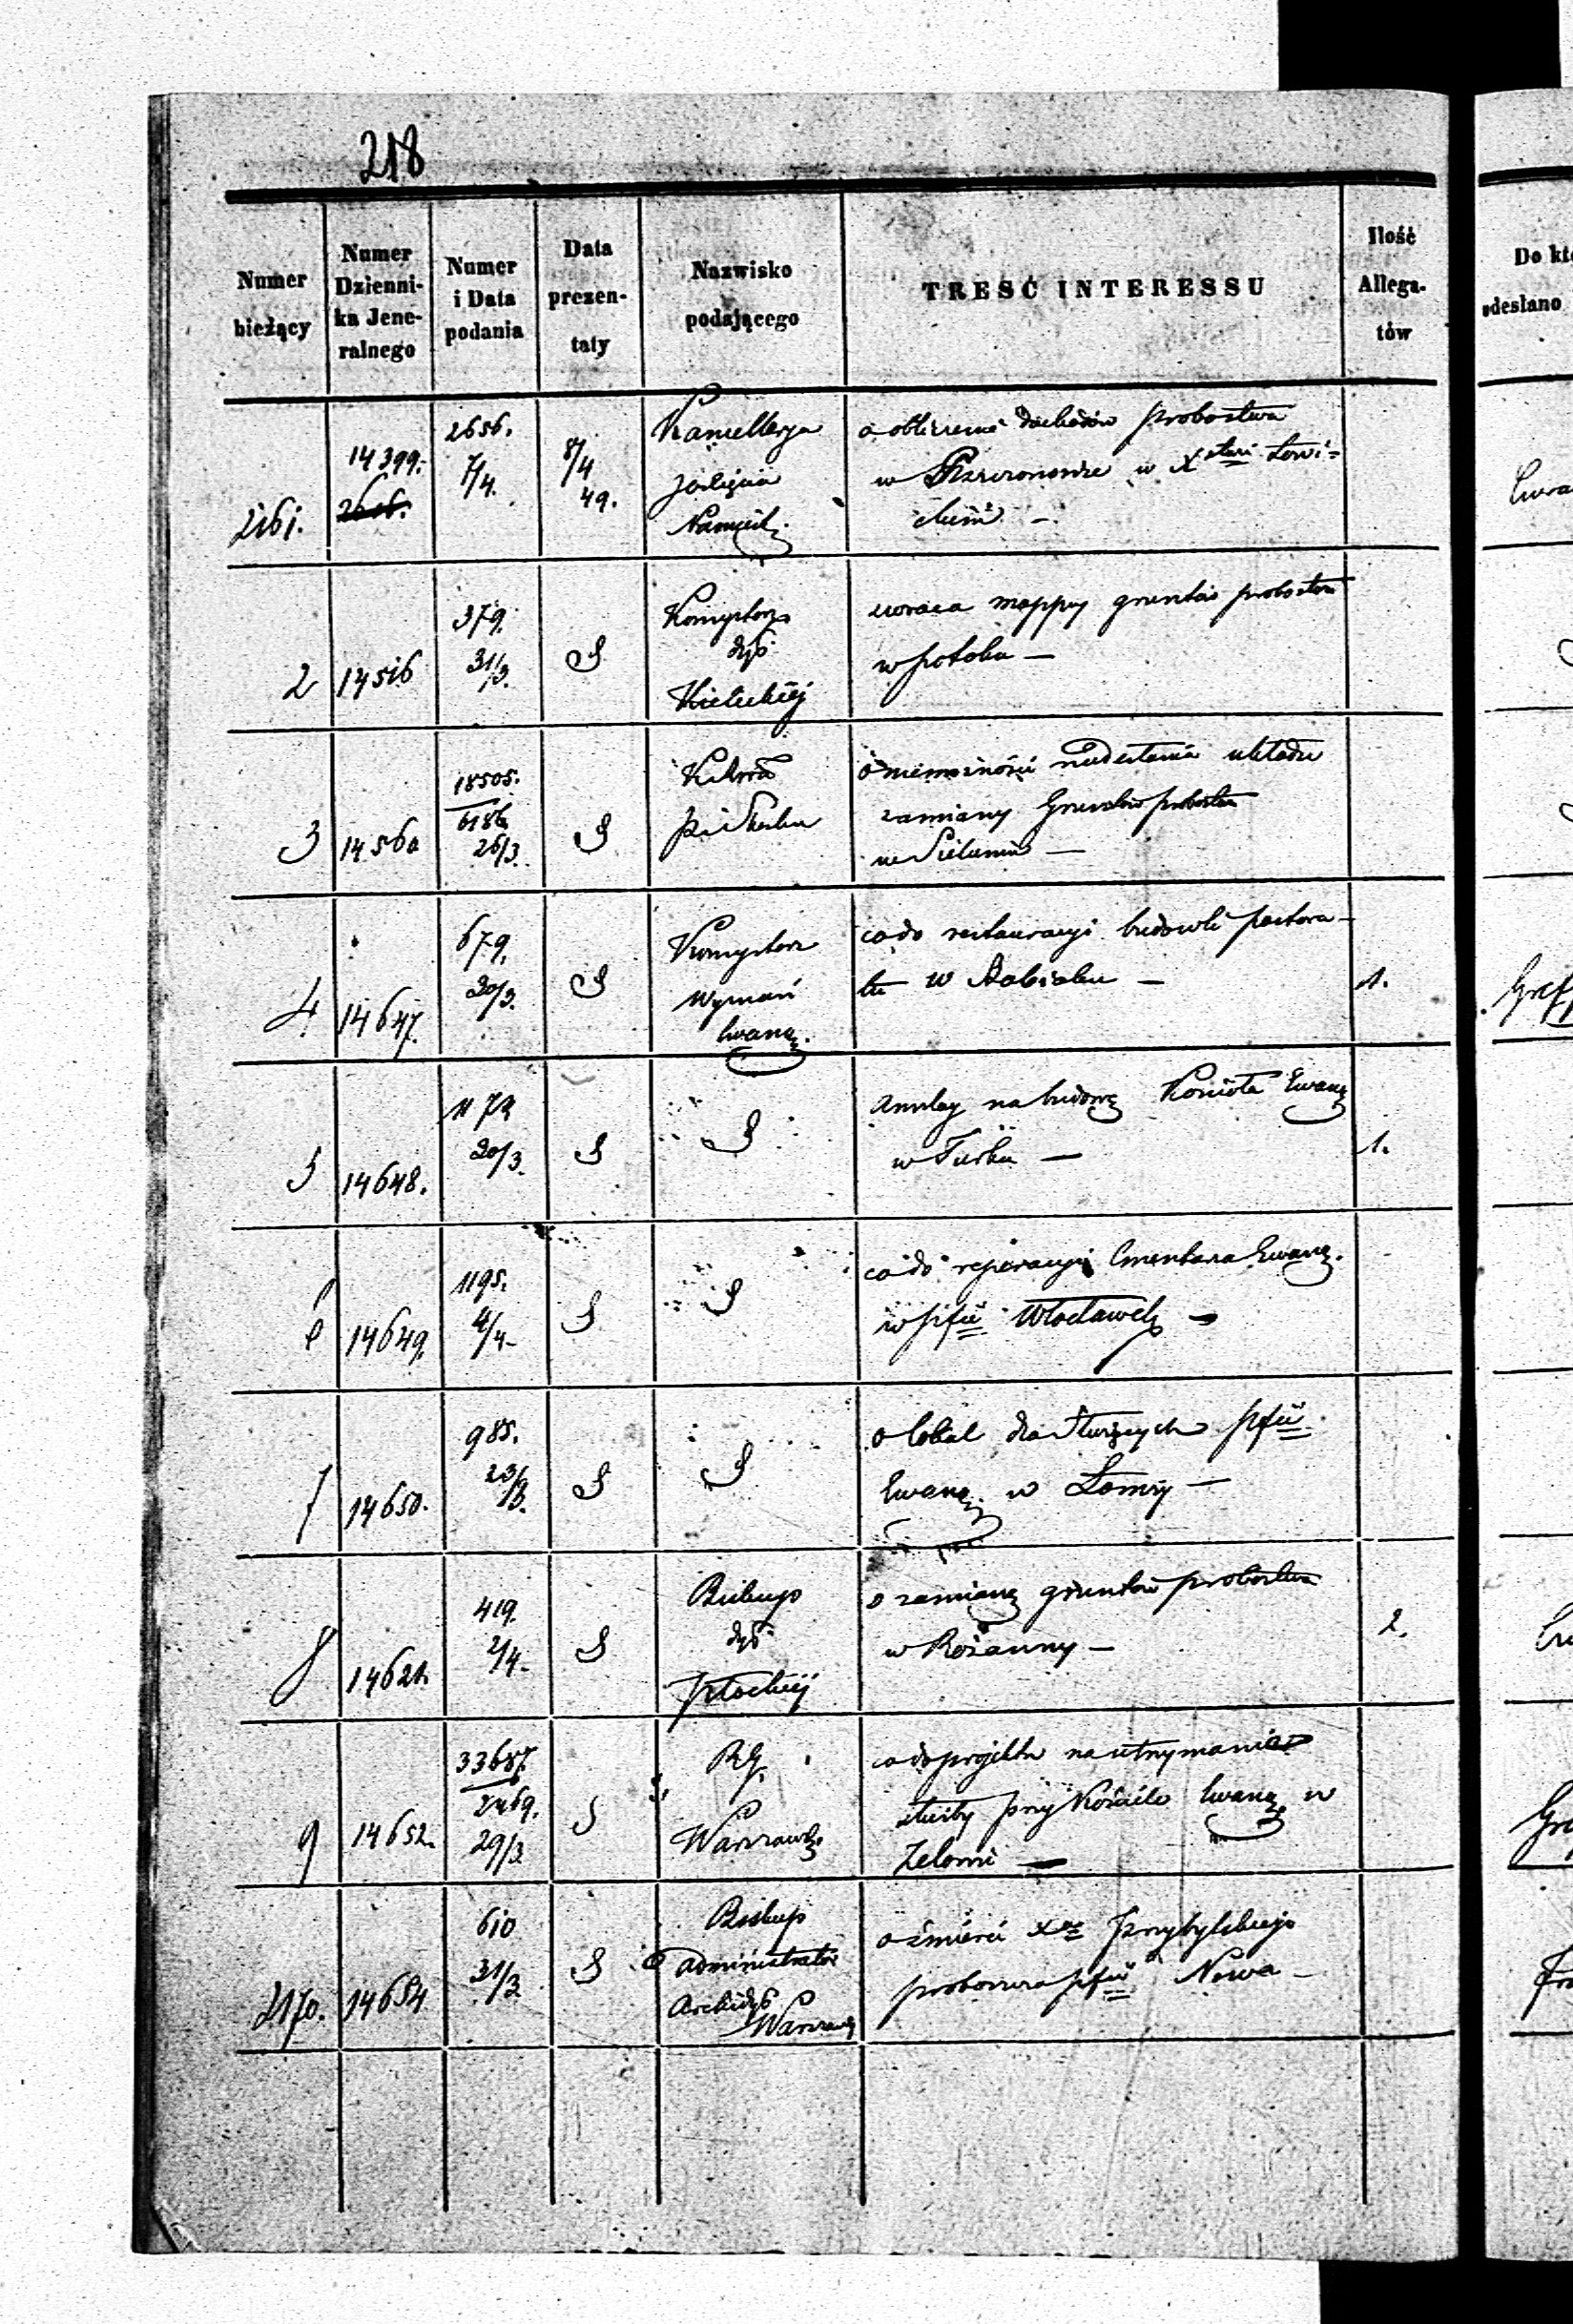 218
Numer bieżący
Numer Dzienni-ka Jene-ralnego
Numer i Data podania
Data prezen-taty
Nazwisko podającego
TRESĆ INTERESSU
Ilość Allega-tów
Do kt
odesłano
2161.
14399.
2656.
7/4.
8/4
49.
Kancellarya
Xięcia
Namiest.
o obliczenie dochodów probostwa
w w X Łowi=
ckim –
2
14516
379.
31/3.
S
Konsystorz
dyč
Kieleckiéj
zwraca mappy gruntów probostwa
w potoku –
3
14560
18505.
6186
26/3.
S
o niemożności nadesłania układu
zamiany Gruntów probostwa
we –
4
14647.
679.
20/3.
S
Konsystorz
Wyznań
Ewang.
co do restauracyi budowli pastora–
tu w Babiaku –
1.
5
14648.
1172
20/3.
S
S
na budowę Kościoła Ewang
w Turku –
1.
6
14649.
1195.
4/4–
S
S
co do reperacyi Cmentarza Ewang.
w pfii Włocławek –
7
14650.
985.
23/3.
S
S
o lokal dla Służących pfii
Ewang. w Łomży –
8
14621.
419.
2/4–
S
Biskup
dyč
Płockiéj
o zamianę gruntów probostwa
w Różanny –
2.
9
14652.
33687.
2469.
29/3
S
RG.
Warszawsk.
co do projektu na utrzymanie
służby przy Kościele Ewang. w
Zelowie –
2170.
14654
610
31/3
S
Biskup
Administrator
Archidyč
Warszaw
o śmierci Xa Przybylskiego
proboszcza pfii Nowa –